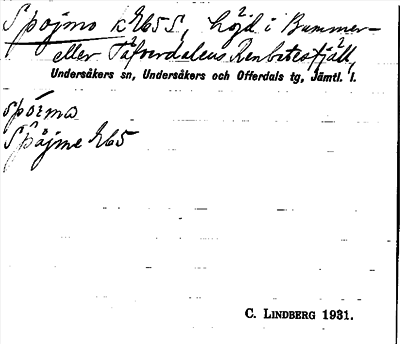 Spøjmo K E65S, höjd i Bummer-
eller Tåfverdalens Renbetesfjäll,
Undersåkers sn, Undersåkers och Offerdals tg, Jämtl. l.
spoima
Spåjme E65
C. LINDBERG 1931.